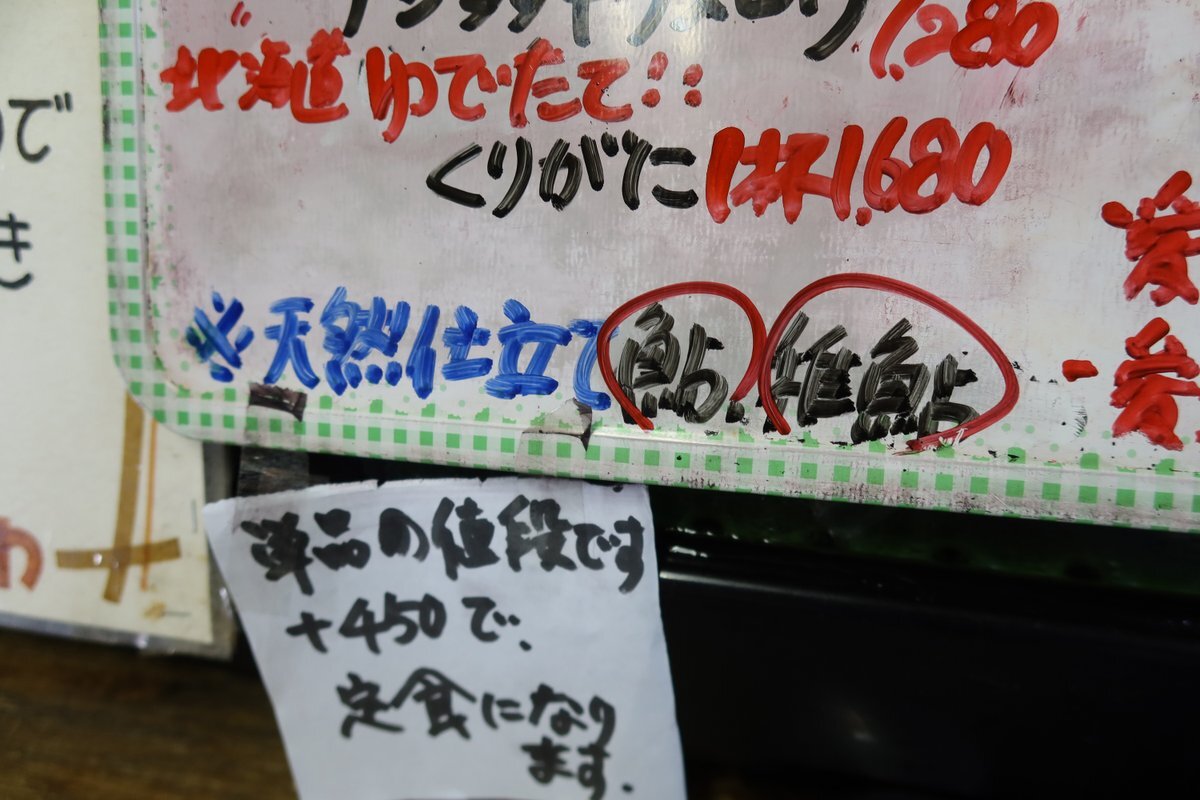 1,280
北海道ゆでたて!!
くりがに1杯1,680
※天然仕立て鮎.稚鮎
単品の値段です
+450で、
定食になり
ます.
で
き
わ